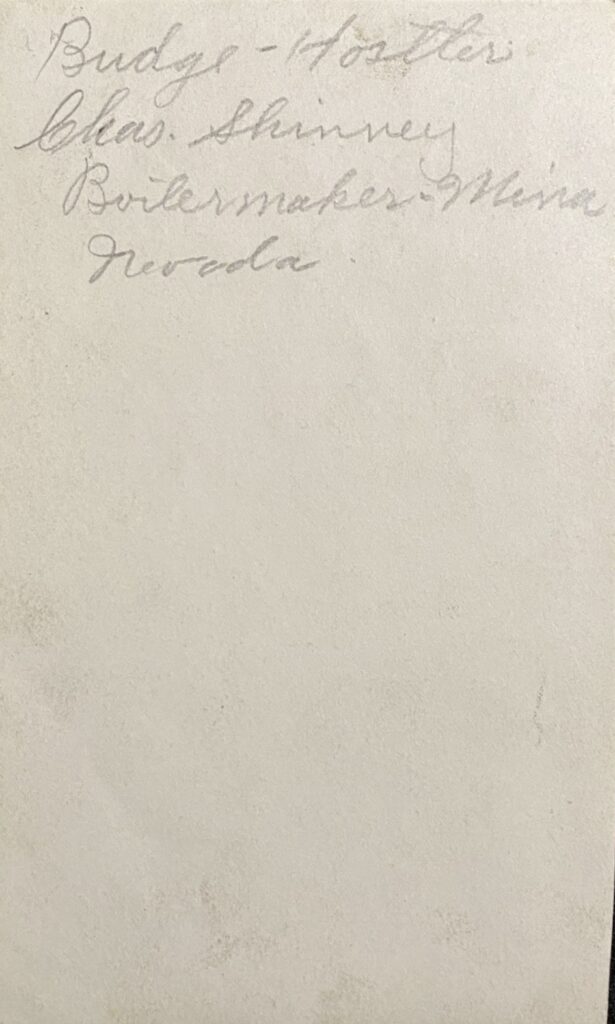 Budge - Hostler
Chas. Shinney
Boilermaker - Mina
Nevada